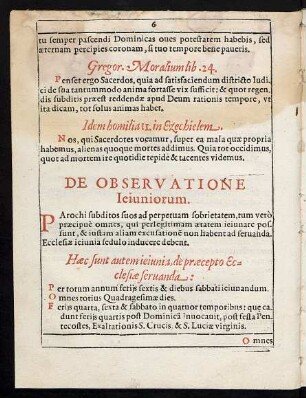 6
tu semper pascendi Dominicas oues potestatem habebis, sed
æternam percipies coronam, si tuo tempore bene paueris.
Gregor. Moralium lib. 24.
Penset ergo Sacerdos, quia ad satisfaciendum districto Iudi,
ci de sua tantummodo anima fortasse vix sufficit; & quot regen,
dis subditis præest reddendæ apud Deum rationis tempore, vt
ita dicam, tot solus animas habet.
Idem homilia 12. in Ezechielem.
Nos, qui Sacerdotes vocamur, super ea mala quæ propria
habemus, alienas quoque mortes addimus. Quia tot occidimus,
quot ad mortem ire quotidie tepidè & tacentes videmus.
DE OBSERVATIONE
Ieiuniorum.
Parochi subditos suos ad perpetuam sobrietatem, tum verò
præcipuè omnes, qui perlegitimam ætatem ieiunare pos,
sunt, & iustam aliam excusationē non habent ad seruanda
Ecclesiæ ieiunia sedulo inducere debent.
Hæc sunt autem ieiunia, de præcepto Ec-
clesiæ seruanda:
Per totum annum ferijs sextis & diebus sabbati ieiunandum.
Omnes totius Quadragesimæ dies.
Ferijs quarta, sexta & sabbato in quatuor temporibus: que ca,
dunt ferijs quartis post Dominicā Inuocauit, post festa Pen,
tecostes, Exaltationis S. Crucis, & S. Luciæ virginis.
Omnes